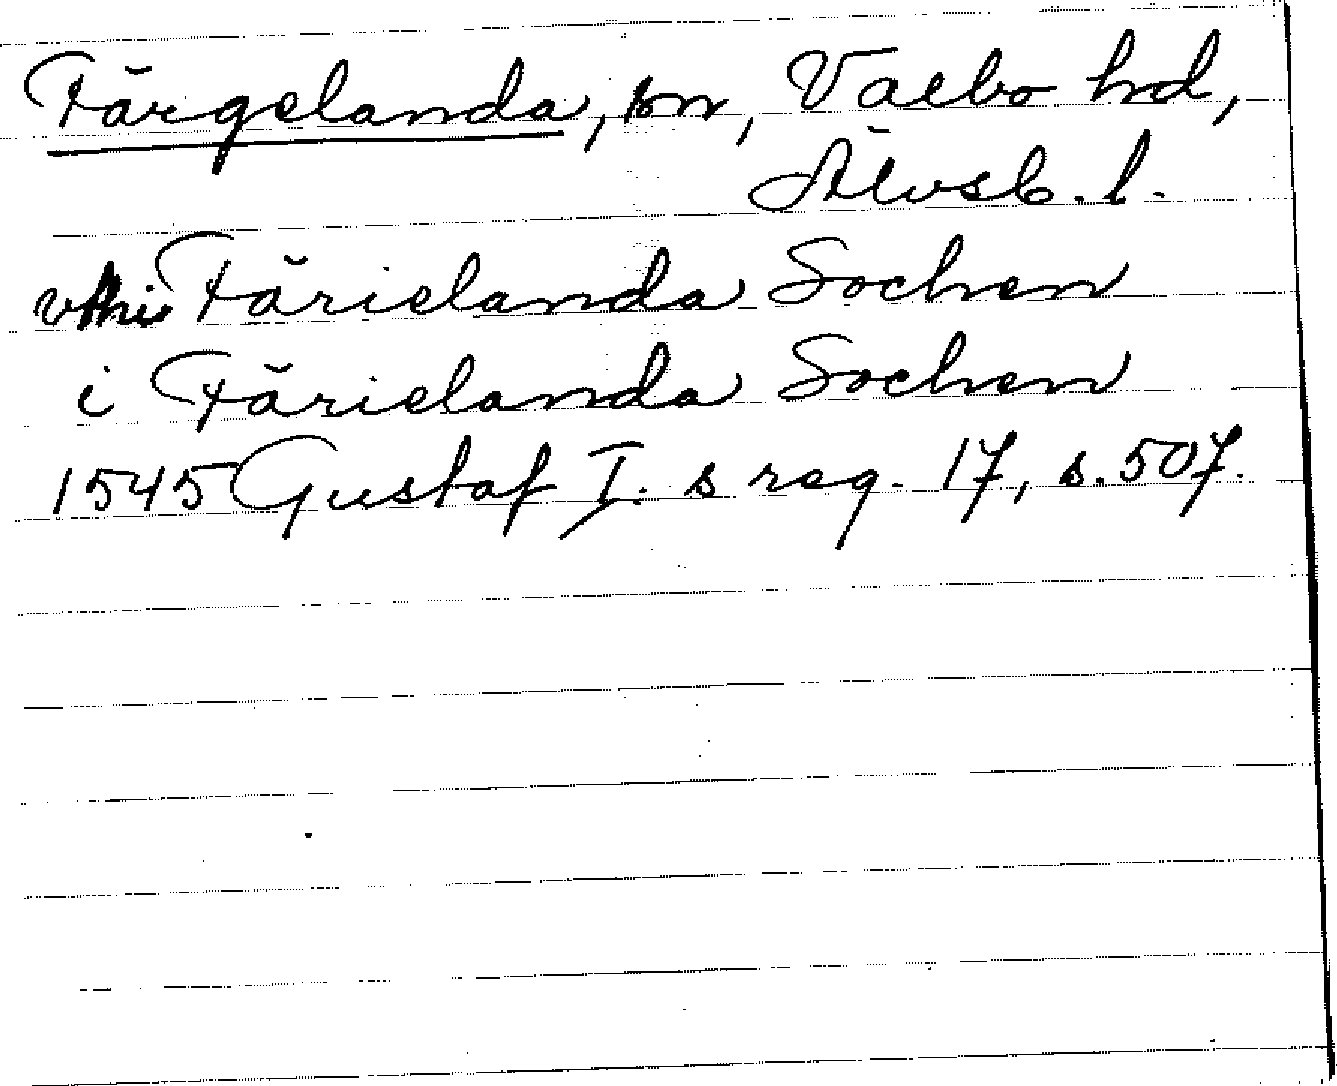 Färgelanda, sn, Valbo hd,
Älvsb. l.
vthi Färielanda Sochen
i Färielanda Sochen
1545 Gustaf I. s reg. 17, s. 507.